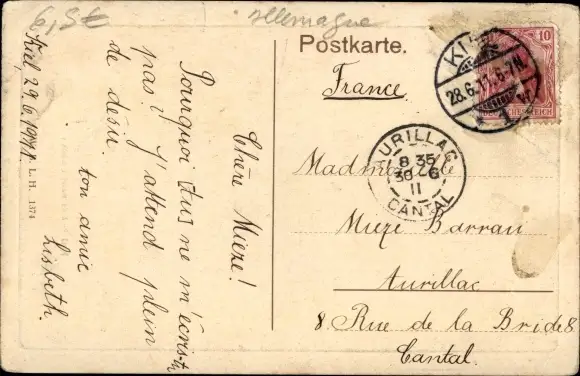 6,5€
allemagne
Postkarte.
France.
10
28.6.11.6-7N.
AURILLAC
8 35
30 6
11
CANTAL
Mademoiselle
Mieze Barrau
Aurillac
8 Rue de la Bride 8
Cantal.
Kiel 29.6.1911.
Chère Mieze!
Pourquoi tus ne m'écris-tu
pas? J'attend plein
de désir.
ton amie
Lisbeth.
L. H. 1374